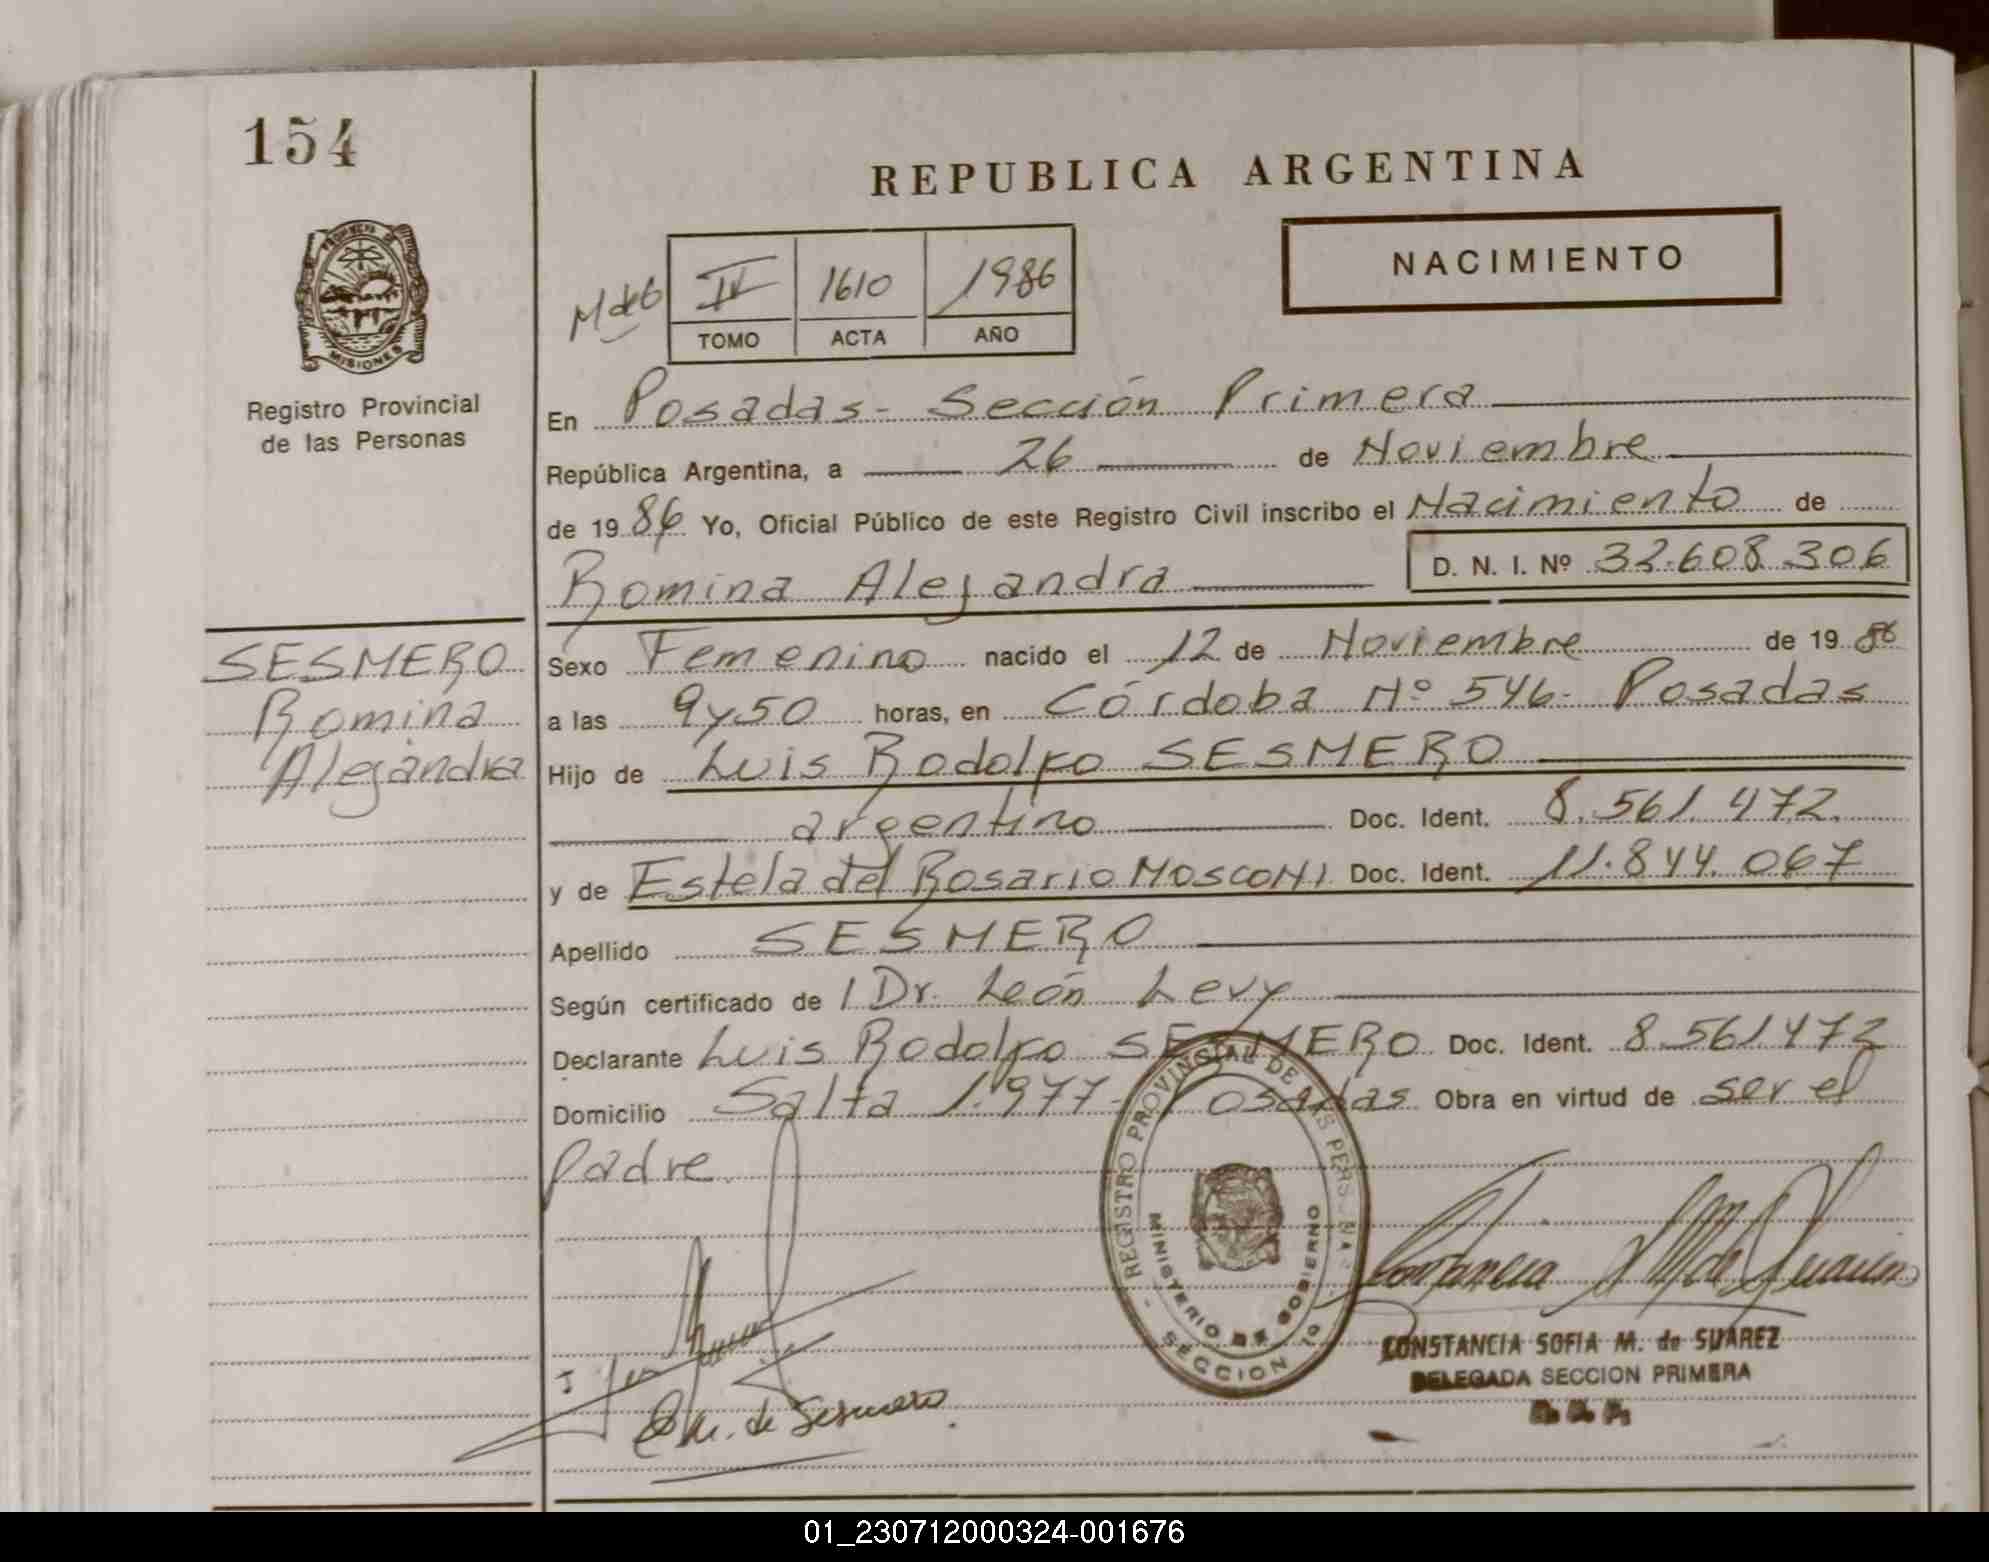 154
REPUBLICA ARGENTINA
NACIMIENTO
PROVINCIA DE
MISIONES
Registro Provincial
de las Personas
IV 1610 1986
TOMO ACTA AÑO
En Posadas - Sección Primera
República Argentina, a 26 de Noviembre
de 1986 Yo, Oficial Público de este Registro Civil inscribo el Nacimiento de
Romina Alejandra D. N. I. Nº 32.608.306
SESMERO
Romina
Alejandra
Sexo Femenino nacido el 12 de Noviembre de 19 86
a las 9 y 50 horas, en Córdoba Nº 546 - Posadas
Hijo de Luis Rodolfo SESMERO
argentino Doc. Ident. 8.561.472.
y de Estela del Rosario MOSCONI Doc. Ident. 11.844.067
Apellido SESMERO
Según certificado de l Dr. León Levy
Declarante Luis Rodolfo SESMERO Doc. Ident. 8.561.472
Domicilio Salta 1.977 - Posadas Obra en virtud de ser el
padre.
REGISTRO PROVINCIAL DE LAS PERSONAS
MINISTERIO DE GOBIERNO
SECCION 1º
de Sesmero
CONSTANCIA SOFIA M. de SUAREZ
DELEGADA SECCION PRIMERA
01_230712000324-001676